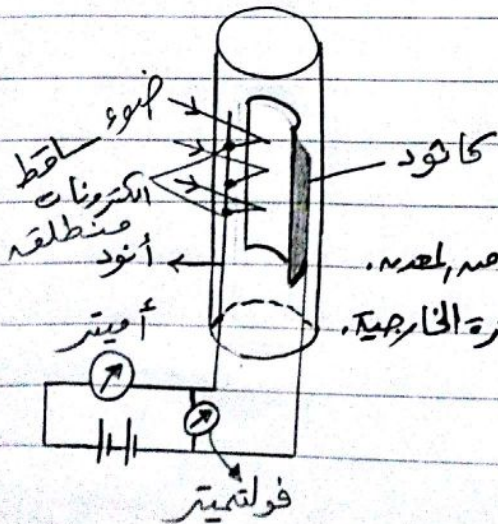 ضوء ساقط
كاثود
الكترونات منطلقة
أنود
من المعدن.
الخارجية.
أميتر
فولتميتر